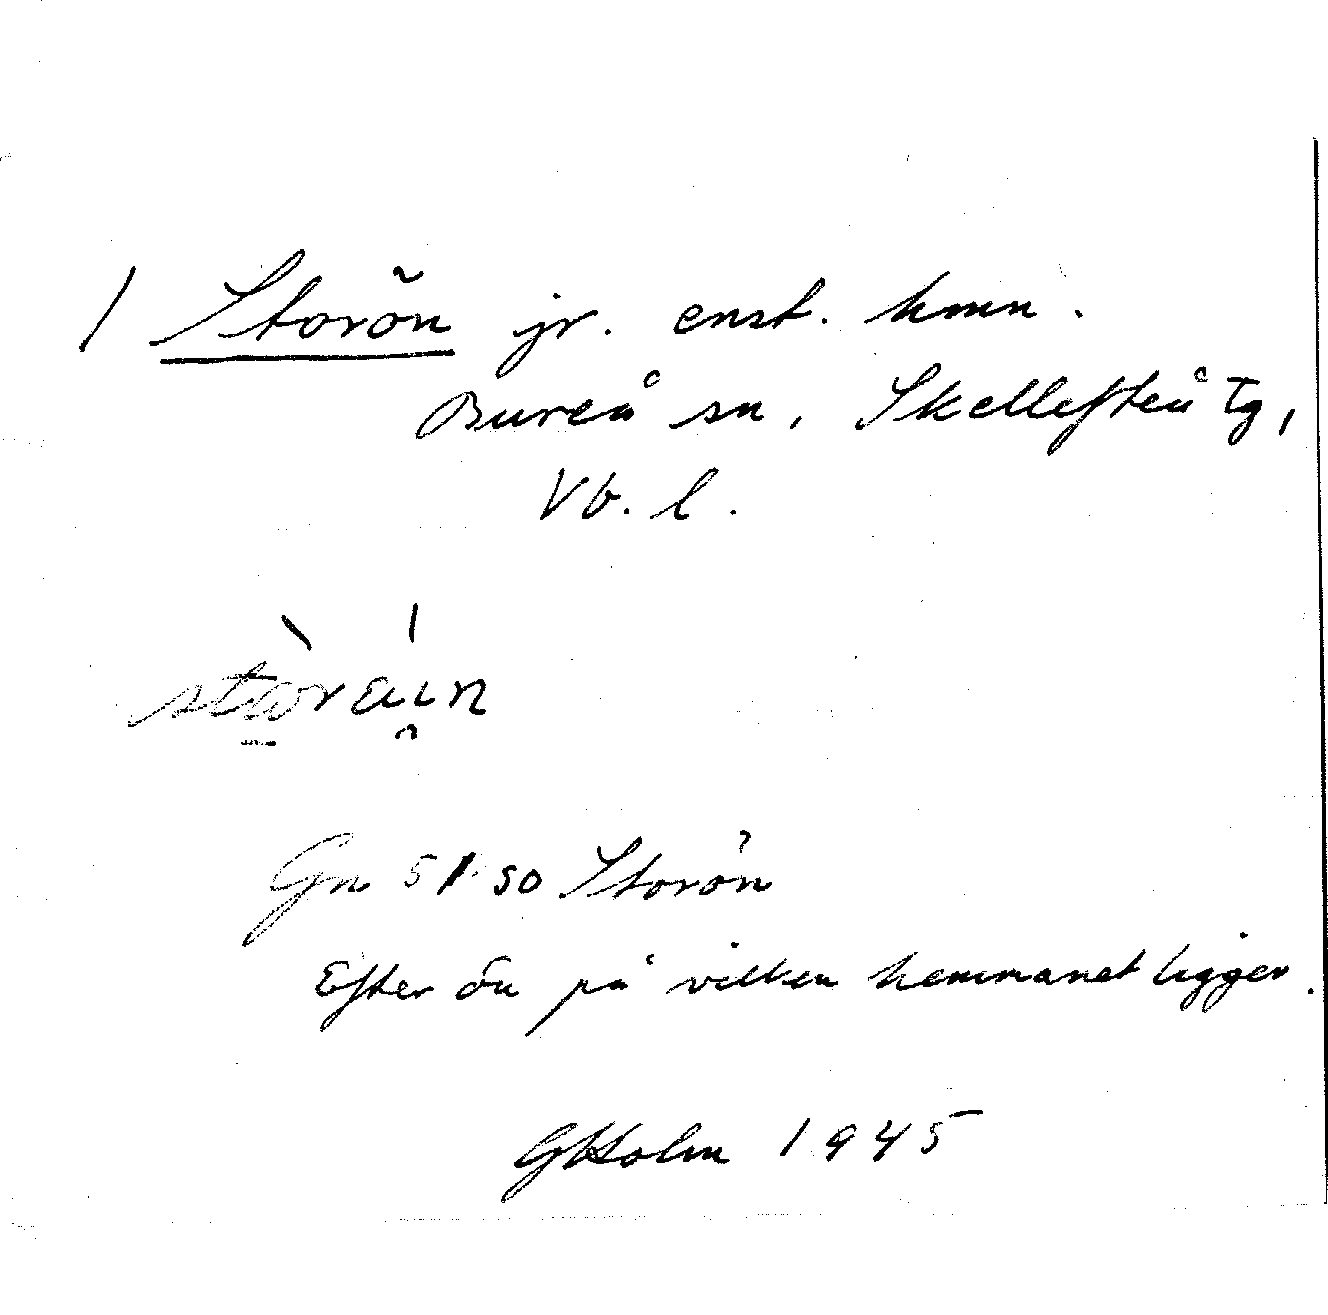 1 Storön jr. enst. hmn.
Bureå sn, Skellefteå tg,
Vb. l.
Gn 51 50 Storön
Efter ön på vilken hemmanet ligger.
GHolm 1945